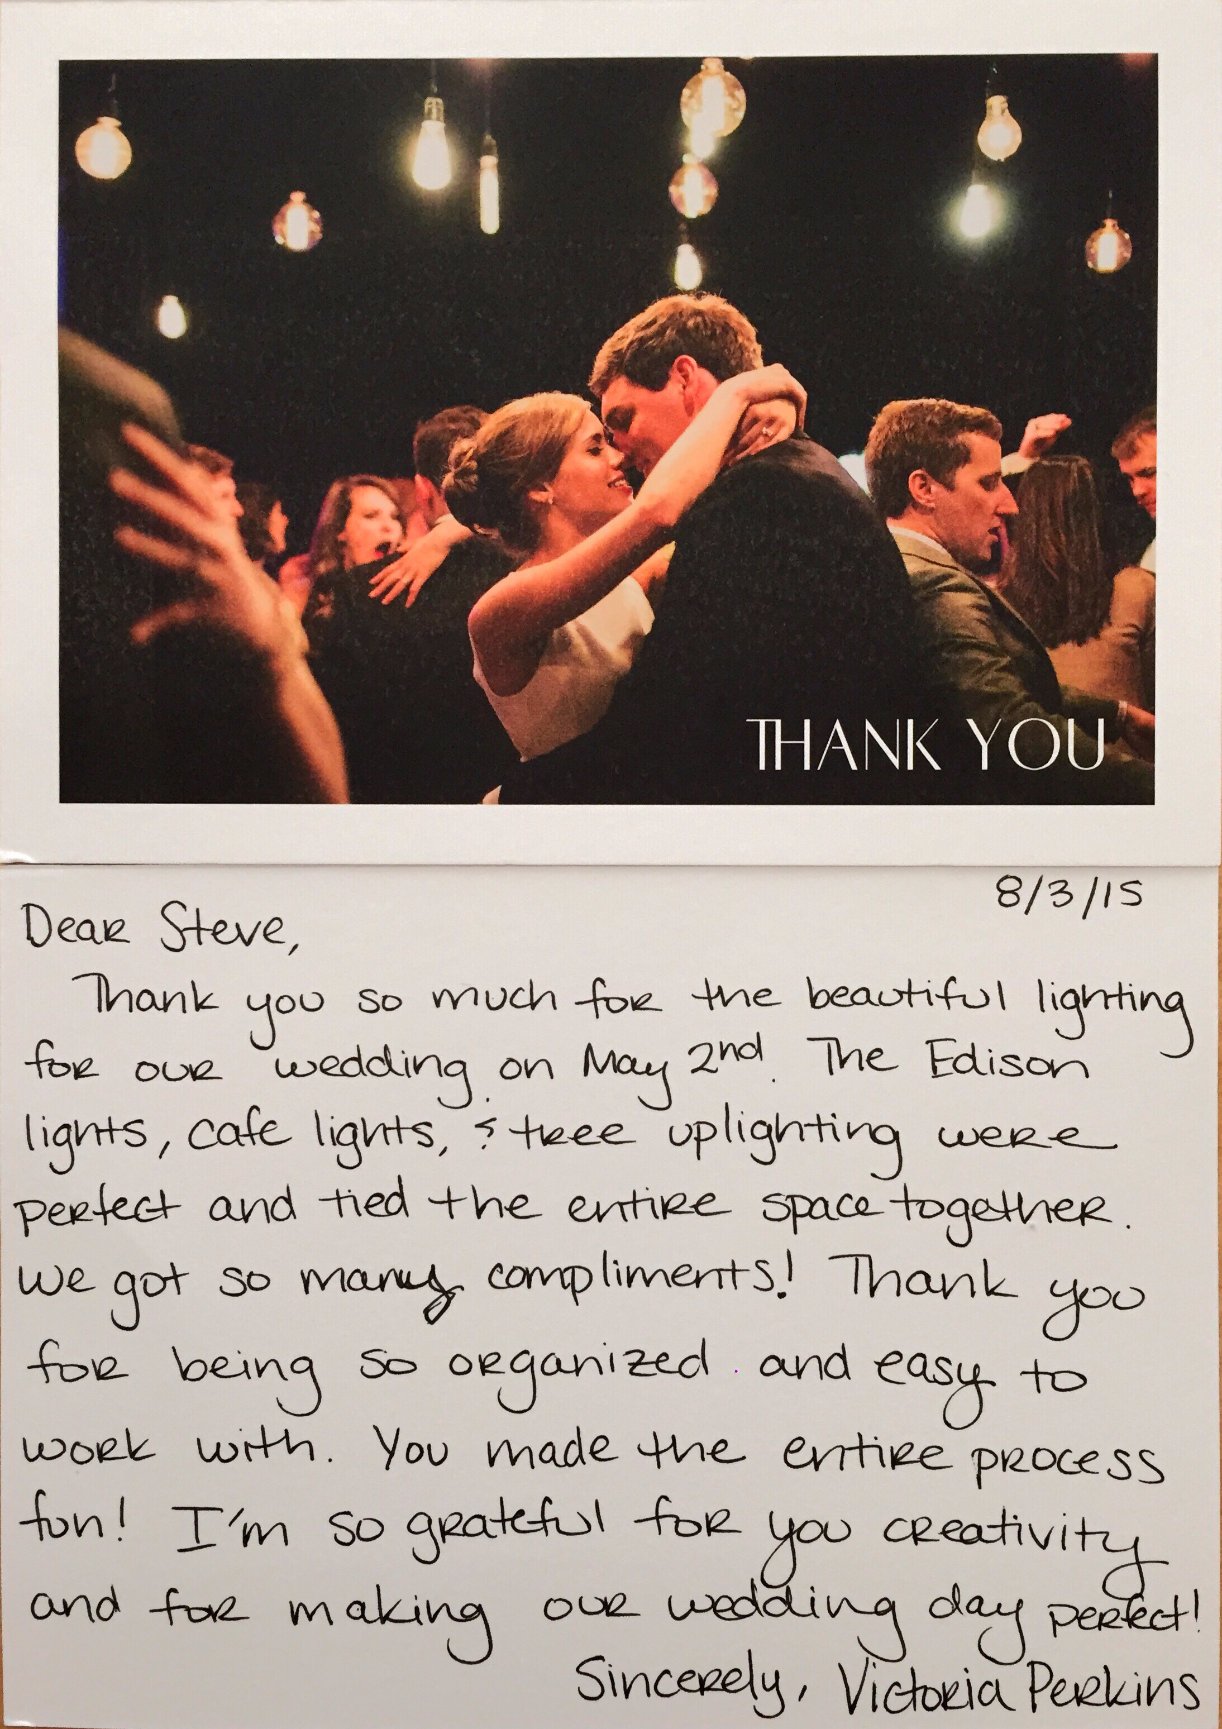 THANK YOU
8/3/15
Dear Steve,
Thank you so much for the beautiful lighting
for our wedding on May 2nd. The Edison
lights, cafe lights, & tree uplighting were
perfect and tied the entire space together.
We got so many compliments! Thank you
for being so organized and easy to
work with. You made the entire process
fun! I'm so grateful for you creativity
and for making our wedding day perfect!
Sincerely, Victoria Perkins